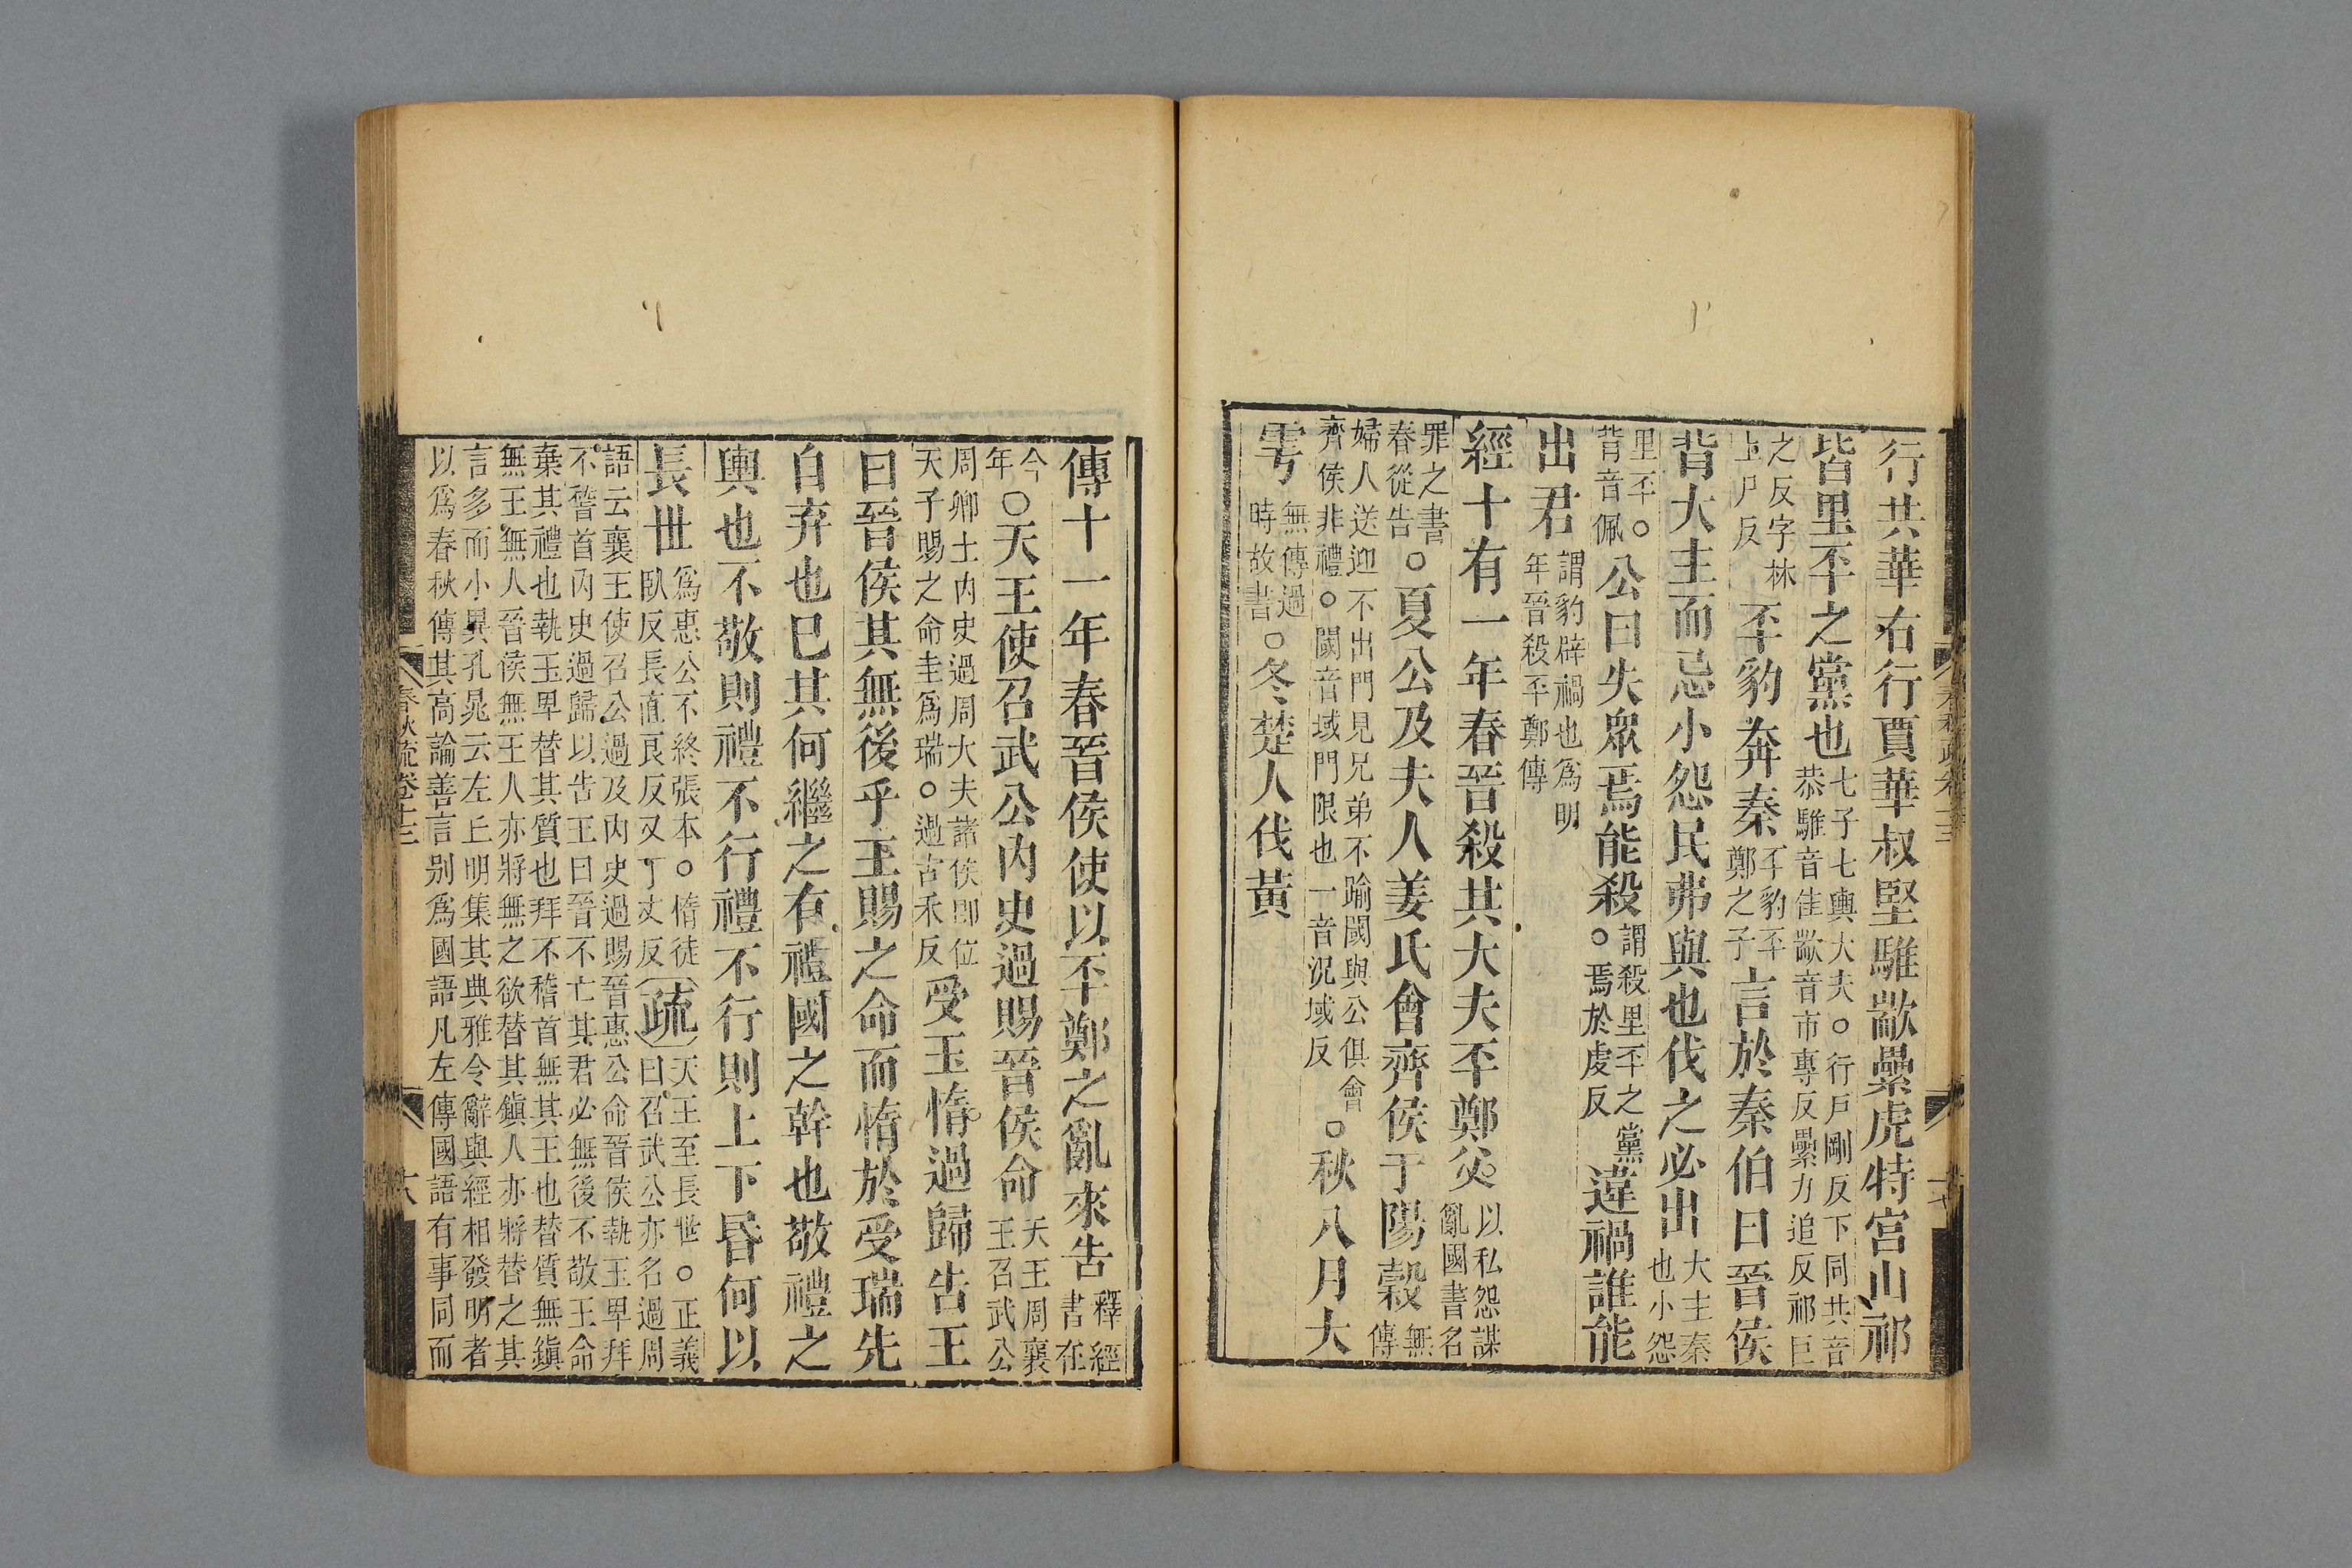 行共華右行賈華叔堅騅歂纍虎特宮山祁
皆里丕之黨也七子七輿大夫○行戸剛反下同共音恭騅音隹歂音市專反纍力追反祁巨
之反字林上尸反丕豹奔秦丕豹丕鄭之子言於秦伯曰晉侯
背大主而忌小怨民弗與也伐之必出大主秦也小怨
里丕○背音佩公曰失眾焉能殺謂殺里丕之黨○焉於虔反違禍誰能
出君謂豹辟禍也爲明年晉殺丕鄭傳
經十有一年春晉殺其大夫丕鄭父以私怨謀亂國書名
罪之書春從告○夏公及夫人姜氏會齊侯于陽穀無傳
婦人送迎不出門見兄弟不踰閾與公俱會齊侯非禮○閾音域門限也一音況域反○秋八月大
雩無傳過時故書○冬楚人伐黃
傳十一年春晉侯使以丕鄭之亂來告釋經書在
今年○天王使召武公內史過賜晉侯命天王周襄王召武公
周卿士內史過周大夫諸侯即位天子賜之命圭爲瑞○過古禾反受玉惰過歸告王
曰晉侯其無後乎王賜之命而惰於受瑞先
自弃也已其何繼之有禮國之幹也敬禮之
輿也不敬則禮不行禮不行則上下昏何以
長世爲惠公不終張本○惰徒臥反長直良反又丁丈反疏天王至長世○正義曰召武公亦名過周
語云襄王使召公過及內史過賜晉惠公命晉侯執玉卑拜
不稽首內史過歸以告王曰晉不亡其君必無後不敬王命
棄其禮也執玉卑替其質也拜不稽首無其王也替質無鎮
無王無人晉侯無王人亦將無之欲替其鎮人亦將替之其
言多而小異孔晁云左丘明集其典雅令辭與經相發明者
以爲春秋傳其高論善言別爲國語凡左傳國語有事同而
春秋疏卷十三
六